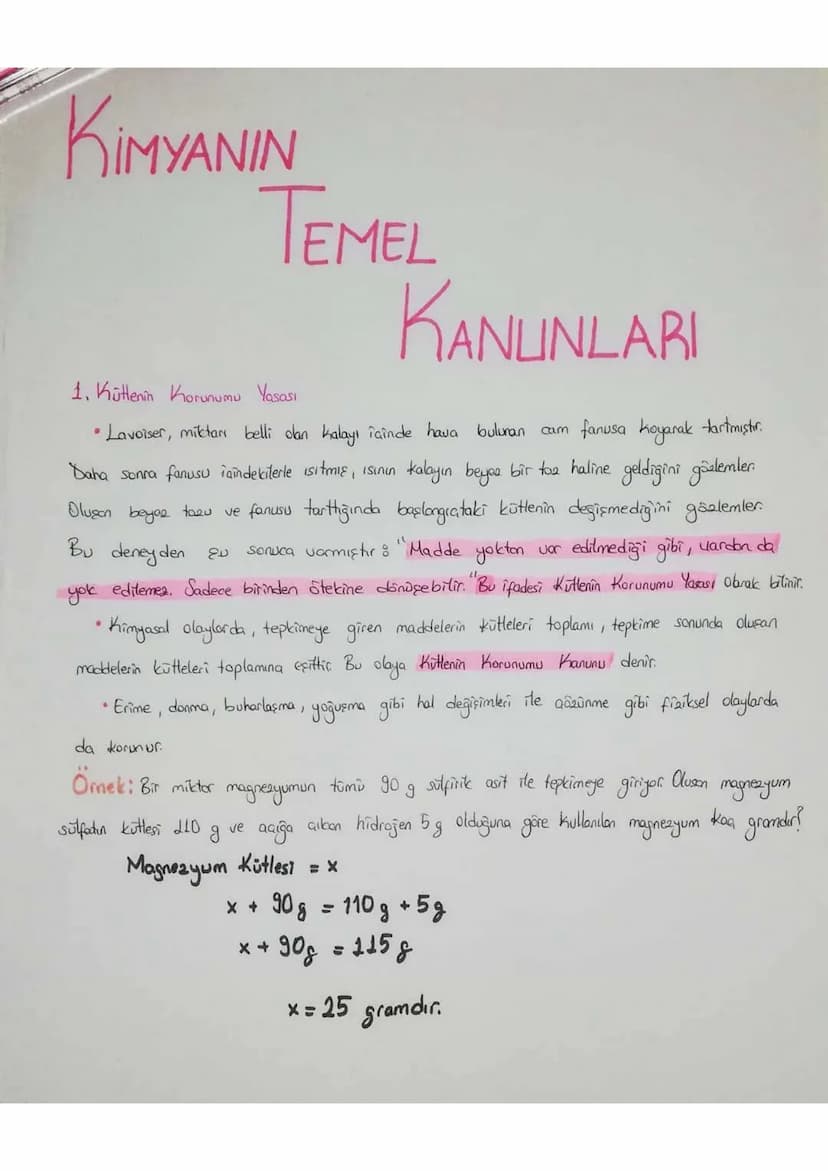 KİMYANIN
TEMEL
KANUNLARI
1. Kütlenin Korunumu Yasası
• Lavoiser, miktarı belli olan kalayı içinde hava bulunan cam fanusa koyarak tartmıştır.
Daha sonra fanusu içindekilerle ısıtmış, ısının kalayın beyaz bir toz haline geldiğini gözlemler.
Oluşan beyaz tozu ve fanusu tarttığında başlangıçtaki kütlenin değişmediğini gözlemler.
Bu deneyden şu sonuca varmıştır: "Madde yoktan var edilmediği gibi, vardan da
yok edilemez. Sadece birinden ötekine dönüşebilir." Bu ifadesi Kütlenin Korunumu Yasası olarak bilinir.
• Kimyasal olaylarda, tepkimeye giren maddelerin kütleleri toplamı, tepkime sonunda oluşan
maddelerin kütleleri toplamına eşittir. Bu olaya Kütlenin Korunumu Kanunu denir.
• Erime, donma, buharlaşma, yoğuşma gibi hal değişimleri ile çözünme gibi fiziksel olaylarda
da korunur.
Örnek: Bir miktar magnezyumun tümü 90 g sülfirik asit ile tepkimeye giriyor. Oluşan magnezyum
sülfatın kütlesi 110 g ve açığa çıkan hidrojen 5 g olduğuna göre kullanılan magnezyum kaç gramdır?
Magnezyum Kütlesi = x
x + 90 g = 110 g + 5 g
x + 90 g = 115 g
x = 25 gramdır.